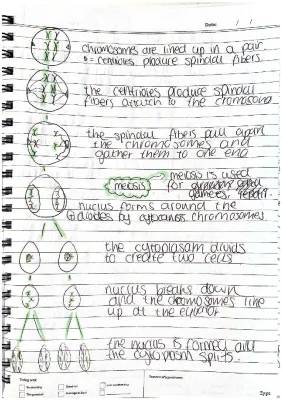 Date: / /
chromosomes are lined up in a pair.
= centrioles produce spindal fibers.
the centrioles produce spindal
fibers attatch to the chromosone
the spindal fibers pull apart
the chromosomes and
gather them to one end
meiosis is used
meiosis
for
gametes, repair.
nuclus forms around the
divides by cytokinesis chromosomes
the cytoplasam divids
to create two cells
nuclus breaks down
and the chromosomes line
up at the equator
the nuclus is formed and
the cytoplasm splits.